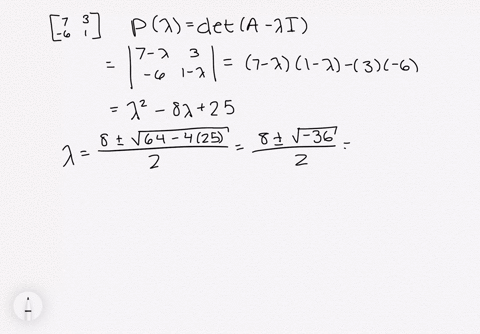 [7 3 -6 1] P(λ) = det(A - λI)
= |7-λ 3 -6 1-λ| = (7-λ)(1-λ)-(3)(-6)
= λ² - 8λ + 25
λ = (8 ± √(64 - 4(25)))/2 = (8 ± √(-36))/2 =